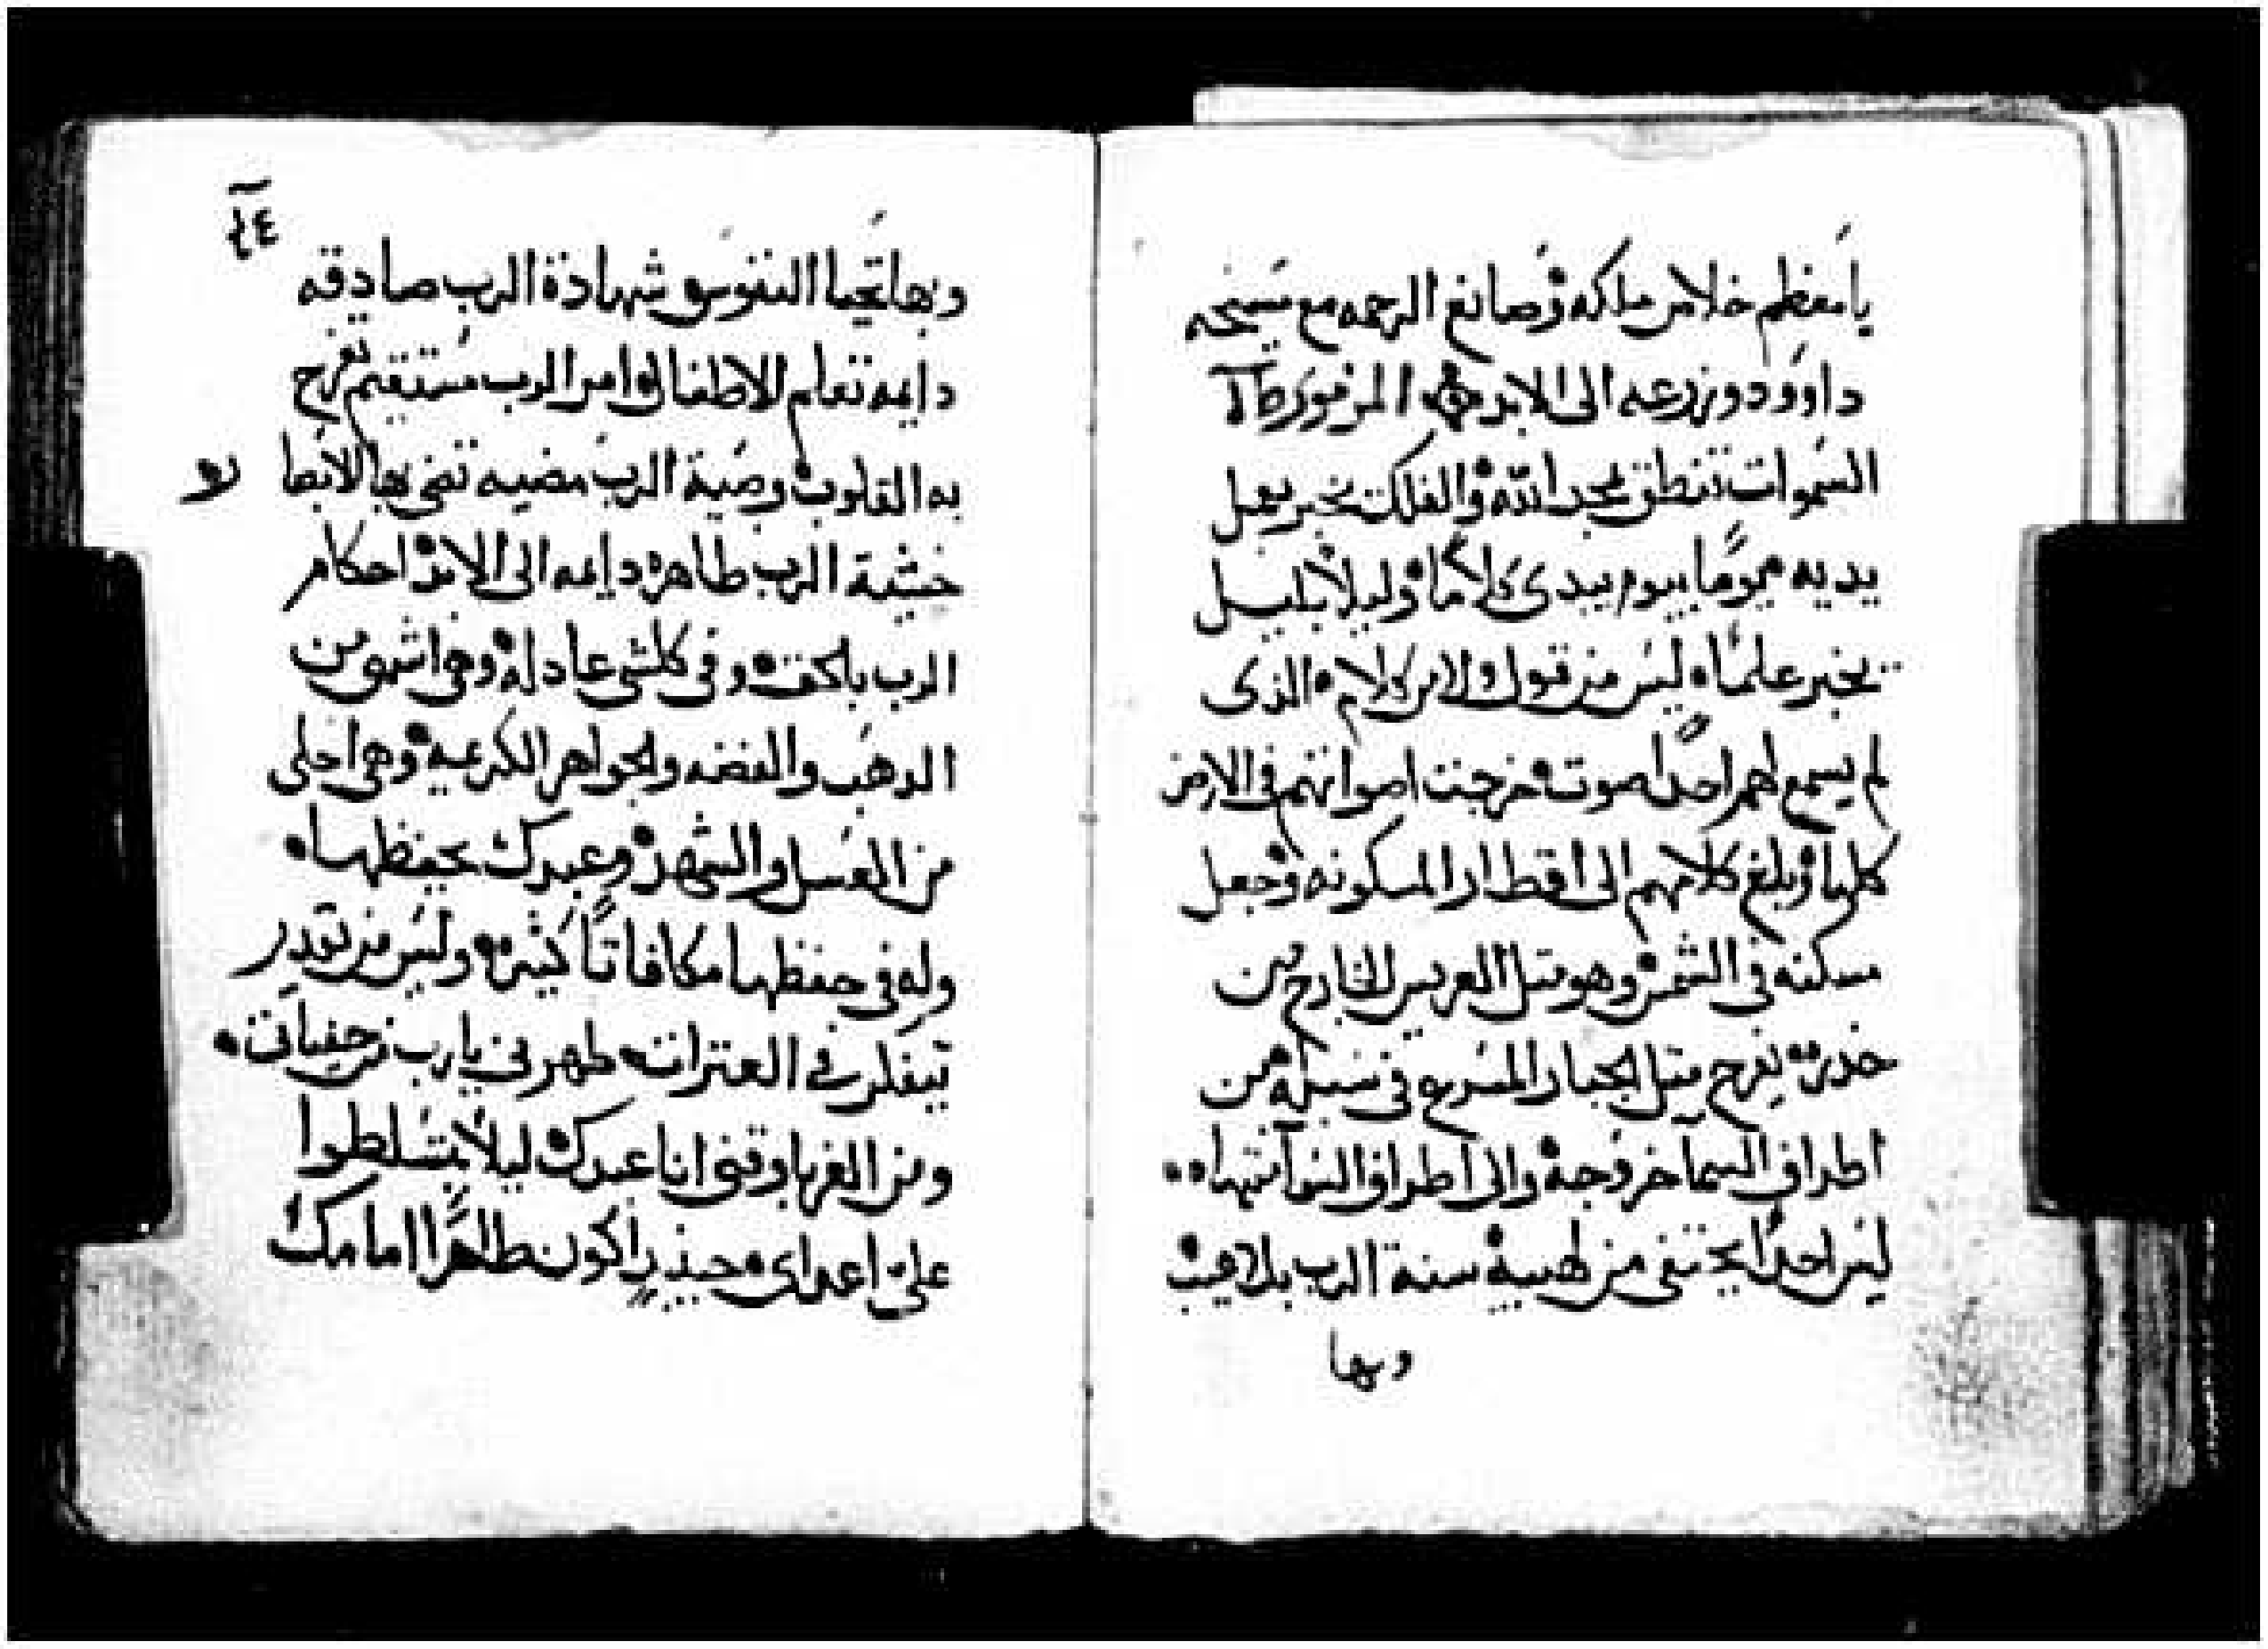 يا معظم خلاص ملكه وصانع الرحمه مع مسيحه
داوود وزرعه الى الابد المزمور
السموات تنطق بمجد الله والفلك تخبر بعمل
يديه يومًا بيوم يبدى كلامًا وليلاً بليل
يخبر علمًا ليس من قول ولا من كلام الذى
لم يسمع لهم احدًا صوت خرجت اصواتهم في الارض
كلها وبلغ كلامهم الى اقطار المسكونه وجعل
مسكنه في الشمس وهو متل العريس الخارج من
خدره يفرح متل الجبار المسرع في سبيله من
اطراف السمآ خروجه والى اطراف السمآ انتهاه
ليس احدًا يختفى من لهيبه سنة الرب بلا عيب
وبها
٤٤
وبها تحيا النفوس شهادة الرب صادقه
دايمه تعلم الاطفال اوامر الرب مستقيم تفرح
به القلوب وصية الرب مضيه تضى بها الابصا
خشية الرب طاهره دايمه الى الابد احكام
الرب بالحق وفى كلشى عادله وهى اشهى من
الدهب والفضه والجواهر الكريمه وهى احلى
من العسل والشهد وعبدك يحفظها
وله فى حفظها مكافاتًا كثيره وليس من يقدر
يتفكر في العترات طهرنى يارب من خفياتى
ومن الغربا وقنى انا عبدك ليلا يتسلطوا
على اعداى حينيذٍ اكون طاهرًا امامك